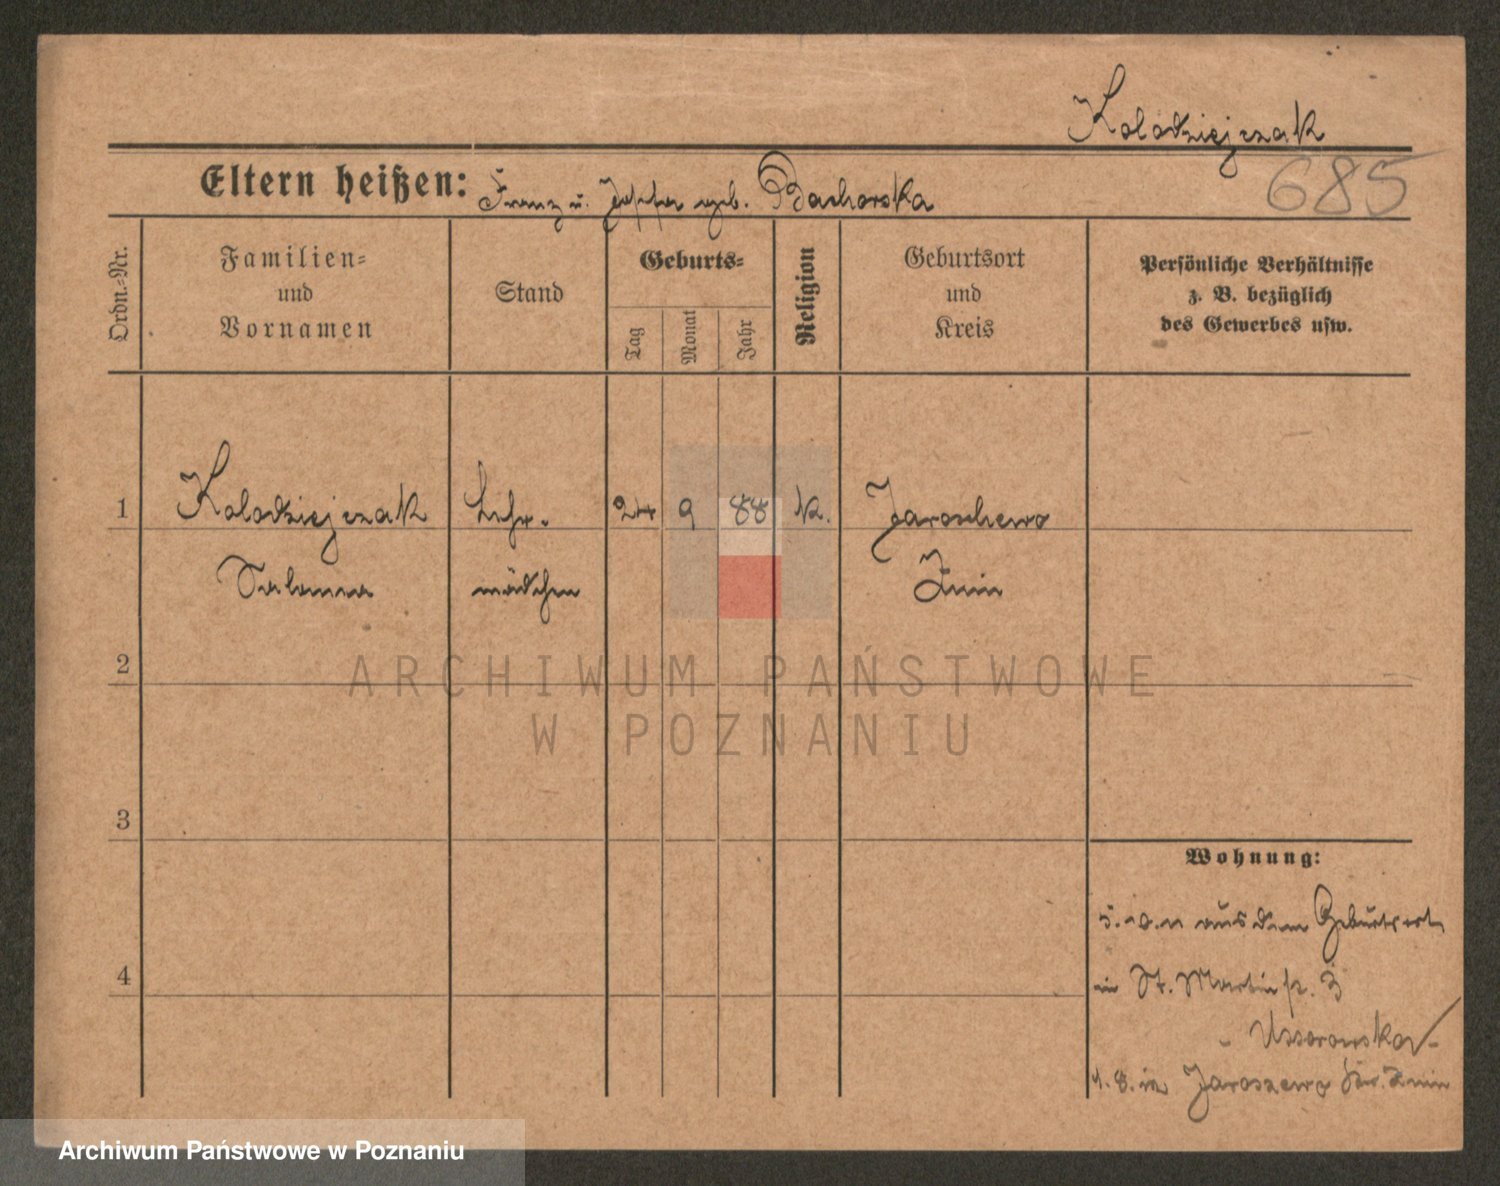 Kolodziejczak
685
Eltern heißen: Franz u. Josefa geb. Bachorska
Ordn.-Nr.
Familien-
und
Vornamen
Stand
Geburts-
Tag
Monat
Jahr
Religion
Geburtsort
und
Kreis
Persönliche Verhältnisse
z. B. bezüglich
des Gewerbes usw.
1 Kolodziejczak Lehr- 24 9 88 k. Jaroschewo
Salomea mädchen Znin
2
3
4
Wohnung:
aus dem Geburtsort
in St. Martin 3
Jaroszewo Kr. Znin
ARCHIWUM PAŃSTWOWE
W POZNANIU
Archiwum Państwowe w Poznaniu